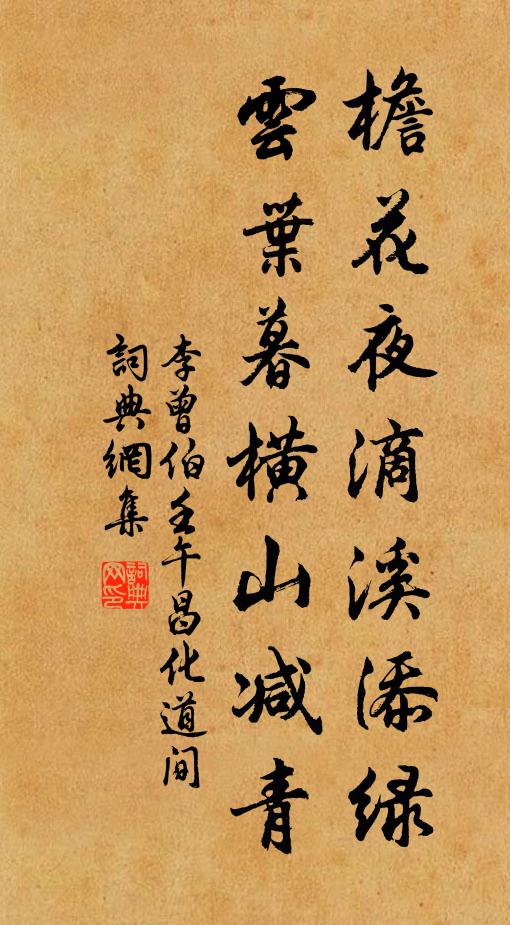 檐花夜滴溪添緑
雲葉暮横山减青
李曾伯壬午昌化道间
詞典網集
詞典网印